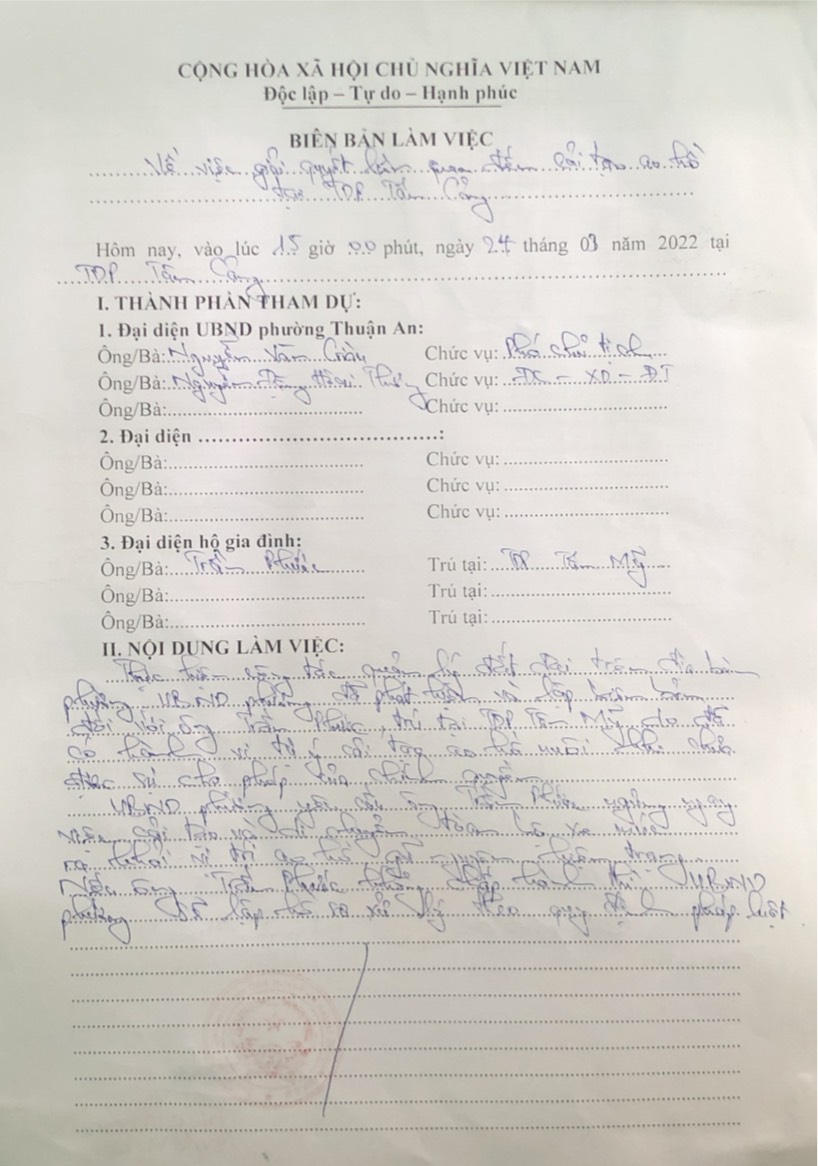 CỘNG HÒA XÃ HỘI CHỦ NGHĨA VIỆT NAM
Độc lập – Tự do – Hạnh phúc
BIÊN BẢN LÀM VIỆC
Về việc giải quyết liên quan đến cải tạo ao hồ
tại TDP Tân Cảng
Hôm nay, vào lúc 15 giờ 00 phút, ngày 24 tháng 03 năm 2022 tại
TDP Tân Cảng
I. THÀNH PHẦN THAM DỰ:
1. Đại diện UBND phường Thuận An:
Ông/Bà: Nguyễn Văn Chức vụ: Phó chủ tịch
Ông/Bà: Nguyễn Tăng Hoài Thương Chức vụ: ĐC - XD - ĐT
Ông/Bà: Chức vụ:
2. Đại diện :
Ông/Bà: Chức vụ:
Ông/Bà: Chức vụ:
Ông/Bà: Chức vụ:
3. Đại diện hộ gia đình:
Ông/Bà: Trần Phước Trú tại: TDP Tân Mỹ
Ông/Bà: Trú tại:
Ông/Bà: Trú tại:
II. NỘI DUNG LÀM VIỆC:
Thực hiện công tác quản lý đất đai trên địa bàn
phường, UBND phường đã phát hiện và lập biên bản
đối với ông Trần Phước, trú tại TDP Tân Mỹ do đã
có hành vi tự ý cải tạo ao hồ nuôi khi chưa
được sự cho phép của chính quyền.
UBND phường yêu cầu ông Trần Phước ngừng ngay
việc cải tạo và di chuyển toàn bộ xe múc
ra khỏi vị trí ao hồ, giữ nguyên hiện trạng.
Nếu ông Trần Phước không chấp hành thì UBND
phường sẽ lập hồ sơ xử lý theo quy định pháp luật